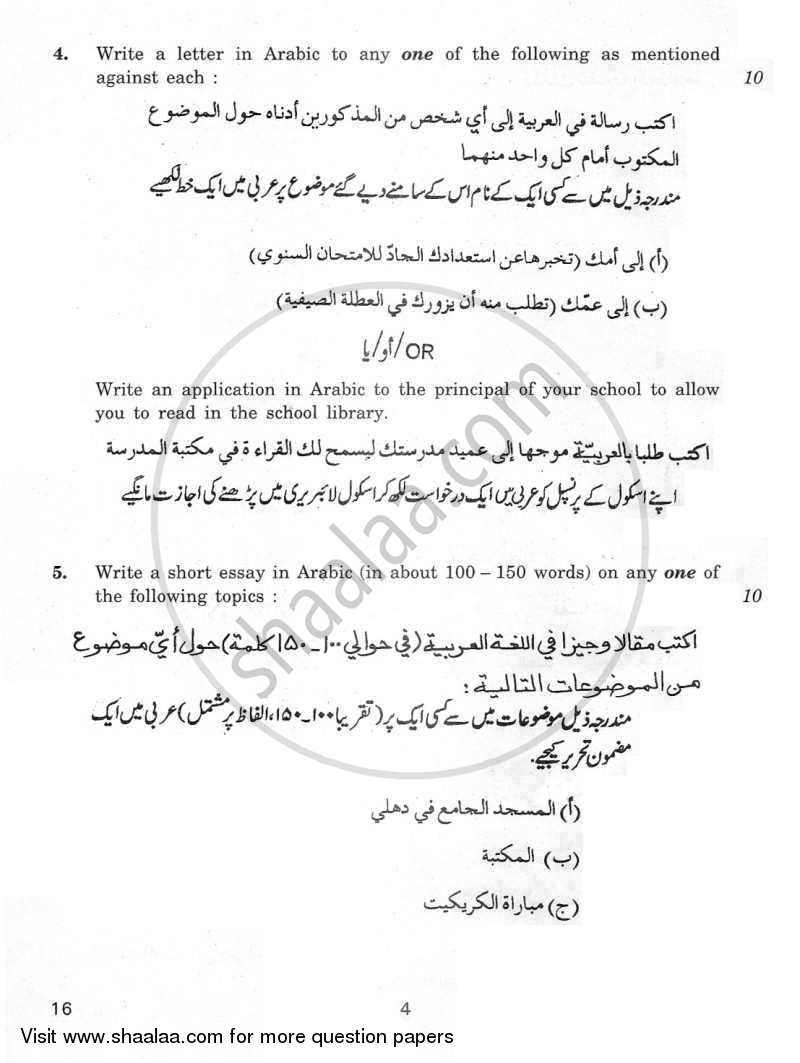 4. Write a letter in Arabic to any one of the following as mentioned
against each : 10
اكتب رسالة في العربية إلى أي شخص من المذكورين أدناه حول الموضوع
المكتوب أمام كل واحد منهما
مندرجہ ذیل میں سے کسی ایک کے نام اس کے سامنے دیے گئے موضوع پر عربی میں ایک خط لکھیے
(أ) إلى أمك (تخبرها عن استعدادك الجادّ للامتحان السنوي)
(ب) إلى عمّك (تطلب منه أن يزورك في العطلة الصيفية)
أو/یا/OR
Write an application in Arabic to the principal of your school to allow
you to read in the school library.
اكتب طلبا بالعربيّة موجها إلى عميد مدرستك ليسمح لك القراءة في مكتبة المدرسة
اپنے اسکول کے پرنسپل کو عربی میں ایک درخواست لکھ کر اسکول لائبریری میں پڑھنے کی اجازت مانگیے
5. Write a short essay in Arabic (in about 100 – 150 words) on any one of
the following topics : 10
اكتب مقالا وجيزا في اللغة العربية (في حوالي ١٠٠ – ١٥٠ كلمة) حول أيّ موضوع
من الموضوعات التالية :
مندرجہ ذیل موضوعات میں سے کسی ایک پر (تقریبا ۱۰۰–۱۵۰، الفاظ پر مشتمل) عربی میں ایک
مضمون تحریر کیجیے۔
(أ) المسجد الجامع في دهلي
(ب) المكتبة
(ج) مباراة الكريكيت
shaalaa.com
16 4
Visit www.shaalaa.com for more question papers